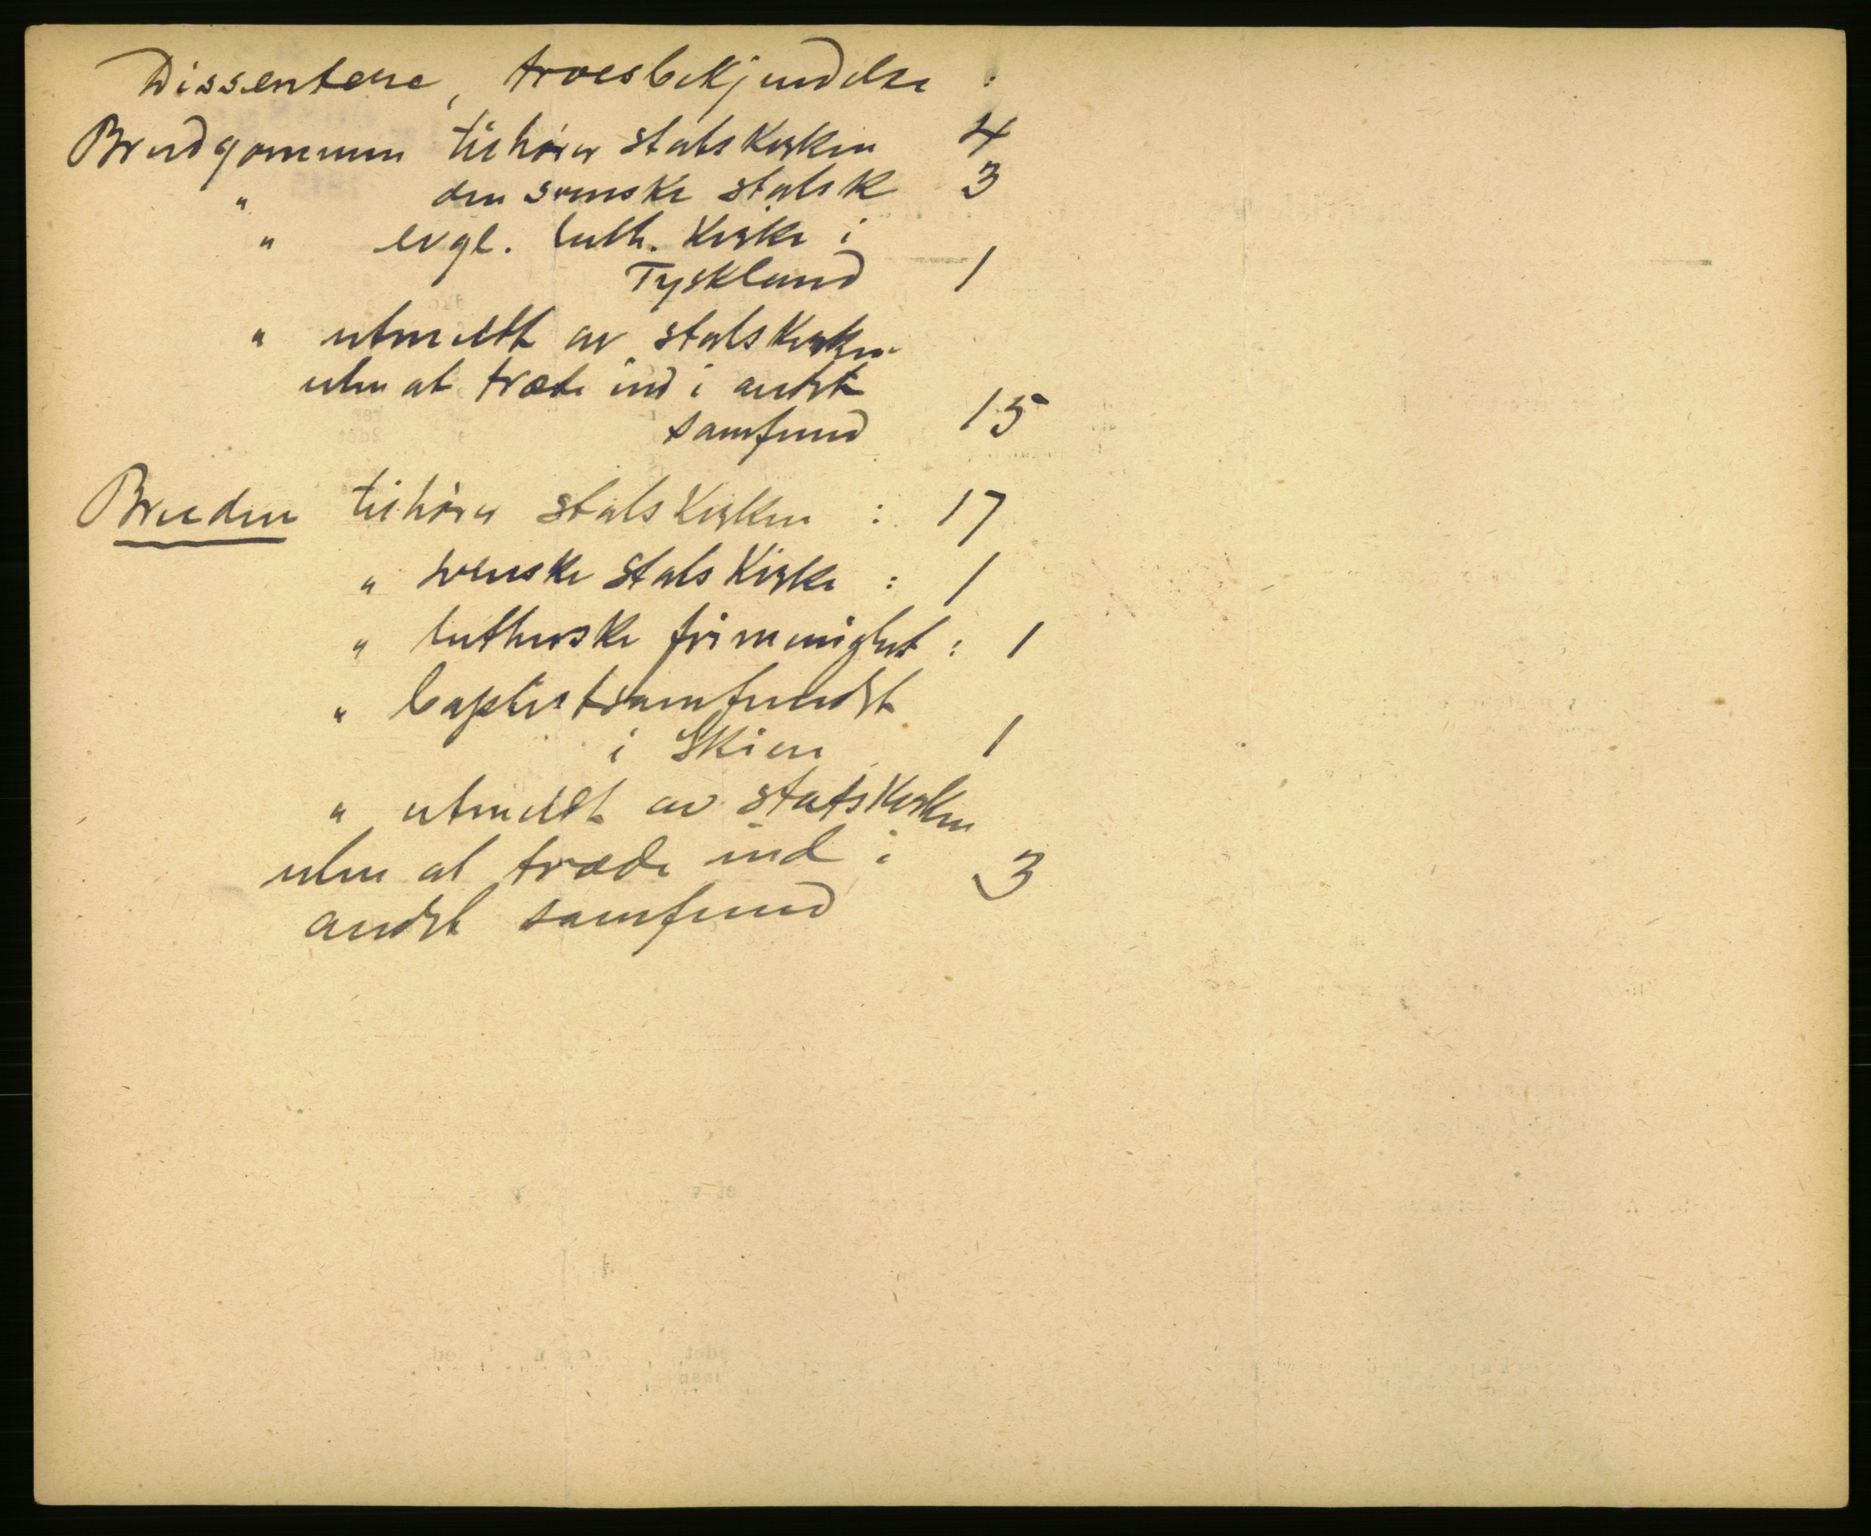 Dissentere, troesbekjendelse :
Brudgommen tilhører statskirken 4
" den svenske statsk 3
" evgl. luth. kirke i
Tyskland 1
" utmeldt av statskirken
uten at træde ind i andet
samfund 15
Bruden tilhører statskirken : 17
" svenske statskirke : 1
" lutherske frimenighet : 1
" baptistsamfundet
i Skien 1
" utmeldt av statskirken
uten at træde ind i 3
andet samfund